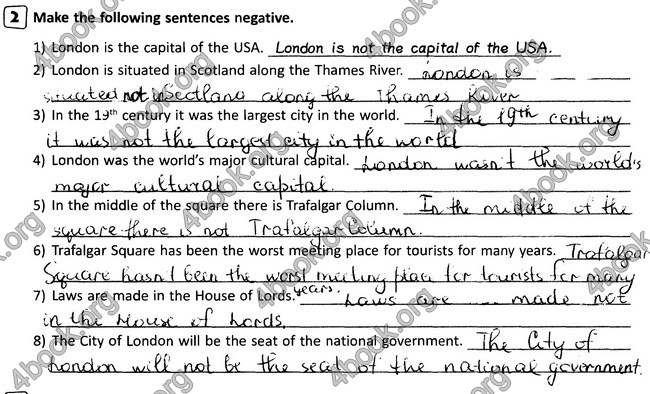 2 Make the following sentences negative.
1) London is the capital of the USA. London is not the capital of the USA.
2) London is situated in Scotland along the Thames River. London is
situated not in Scotland along the Thames River
3) In the 19th century it was the largest city in the world. In the 19th century
it was not the largest city in the world
4) London was the world's major cultural capital. London wasn't the world's
major cultural capital.
5) In the middle of the square there is Trafalgar Column. In the middle of the
square there is not Trafalgar Column.
6) Trafalgar Square has been the worst meeting place for tourists for many years. Trafalgar
Square hasn't been the worst meeting place for tourists for many
years.
7) Laws are made in the House of Lords. Laws are made not
in the House of Lords.
8) The City of London will be the seat of the national government. The City of
London will not be the seat of the national government.
4book.org